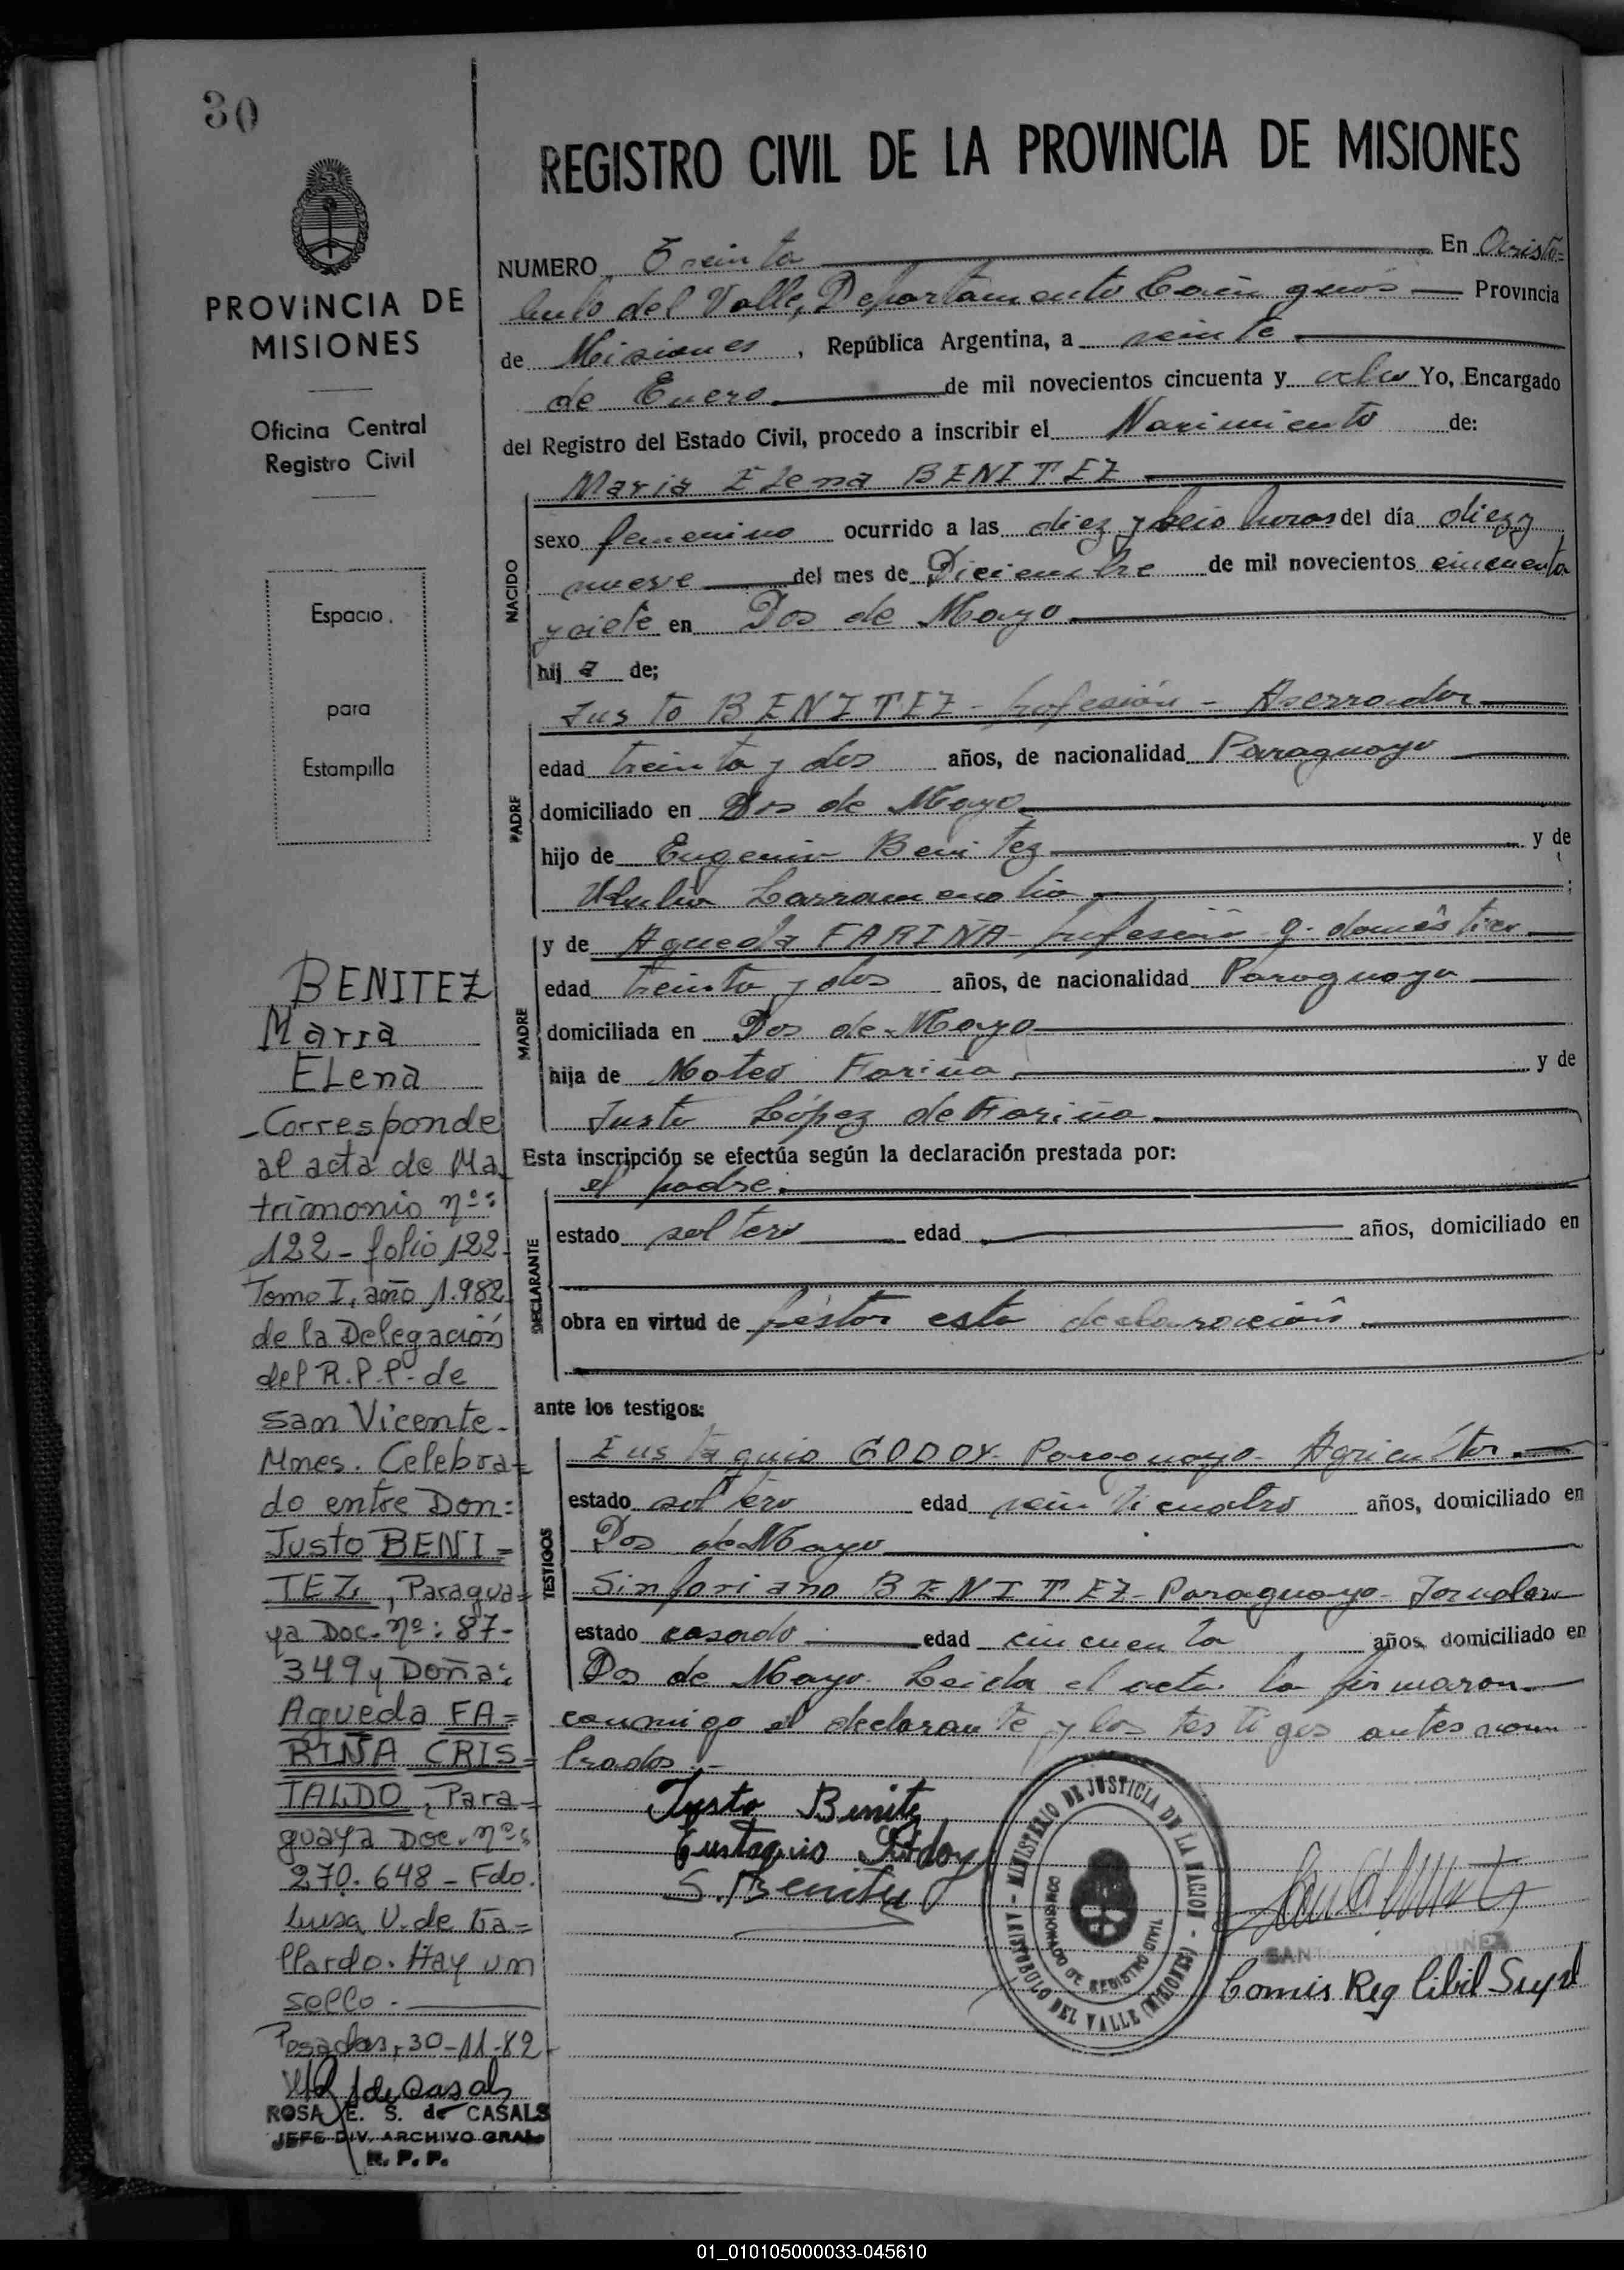 30
PROVINCIA DE
MISIONES
Oficina Central
Registro Civil
Espacio
para
Estampilla
BENITEZ
Maria
ELena
-Corresponde
al acta de Ma
trimonio nº:
122 - folio 122-
Tomo I, año 1.982
de la Delegación
del R.P.P. de
San Vicente-
Mnes. Celebra=
do entre Don:
Justo BENI=
TEZ, Paragua=
ya Doc. nº: 87-
349 y Doña:
Agueda FA=
RIÑA CRIS=
TALDO, Para=
guaya Doc. nº:
270.648 - Fdo.
Luisa V. de Ga=
llardo. Hay un
sello.-
Posadas, 30-11-82-
ROSA E. S. de CASALS
JEFE DIV. ARCHIVO GRAL
R. P. P.
REGISTRO CIVIL DE LA PROVINCIA DE MISIONES
NUMERO Treinta En Aristó=
bulo del Valle, Departamento Cainguás Provincia
de Misiones, República Argentina, a veinte
de Enero de mil novecientos cincuenta y ocho Yo, Encargado
del Registro del Estado Civil, procedo a inscribir el Nacimiento de:
Maria Elena BENITEZ
NACIDO
sexo femenino ocurrido a las diez y seis horas del día diez y
nueve del mes de Diciembre de mil novecientos cincuenta
y siete en Dos de Mayo
hija de;
Justo BENITEZ - profesión - Aserrador
PADRE
edad treinta y dos años, de nacionalidad Paraguayo
domiciliado en Dos de Mayo
hijo de Eugenio Benitez y de
Larramendia;
MADRE
y de Agueda FARIÑA - profesión q. domésticos
edad treinta y dos años, de nacionalidad Paraguaya
domiciliada en Dos de Mayo
hija de Mateo Fariña y de
Justa López de Fariña
Esta inscripción se efectúa según la declaración prestada por:
el padre.
DECLARANTE
estado soltero edad años, domiciliado en
obra en virtud de préstar esta declaración
ante los testigos:
TESTIGOS
Eustaquio GODOY - Paraguayo - Agricultor
estado soltero edad veinticuatro años, domiciliado en
Dos de Mayo
Sinforiano BENITEZ - Paraguayo - Jornalero
estado casado edad cincuenta años, domiciliado en
Dos de Mayo. Leida el acta la firmaron
conmigo el declarante y los testigos antes nom
brados.-
Justo Benitez
Eustaquio Godoy
S. Benitez
MINISTERIO DE JUSTICIA DE LA NACION - ARISTOBULO DEL VALLE (MISIONES) -
DE REGISTRO CIVIL
Comis Reg Cibil
01_010105000033-045610